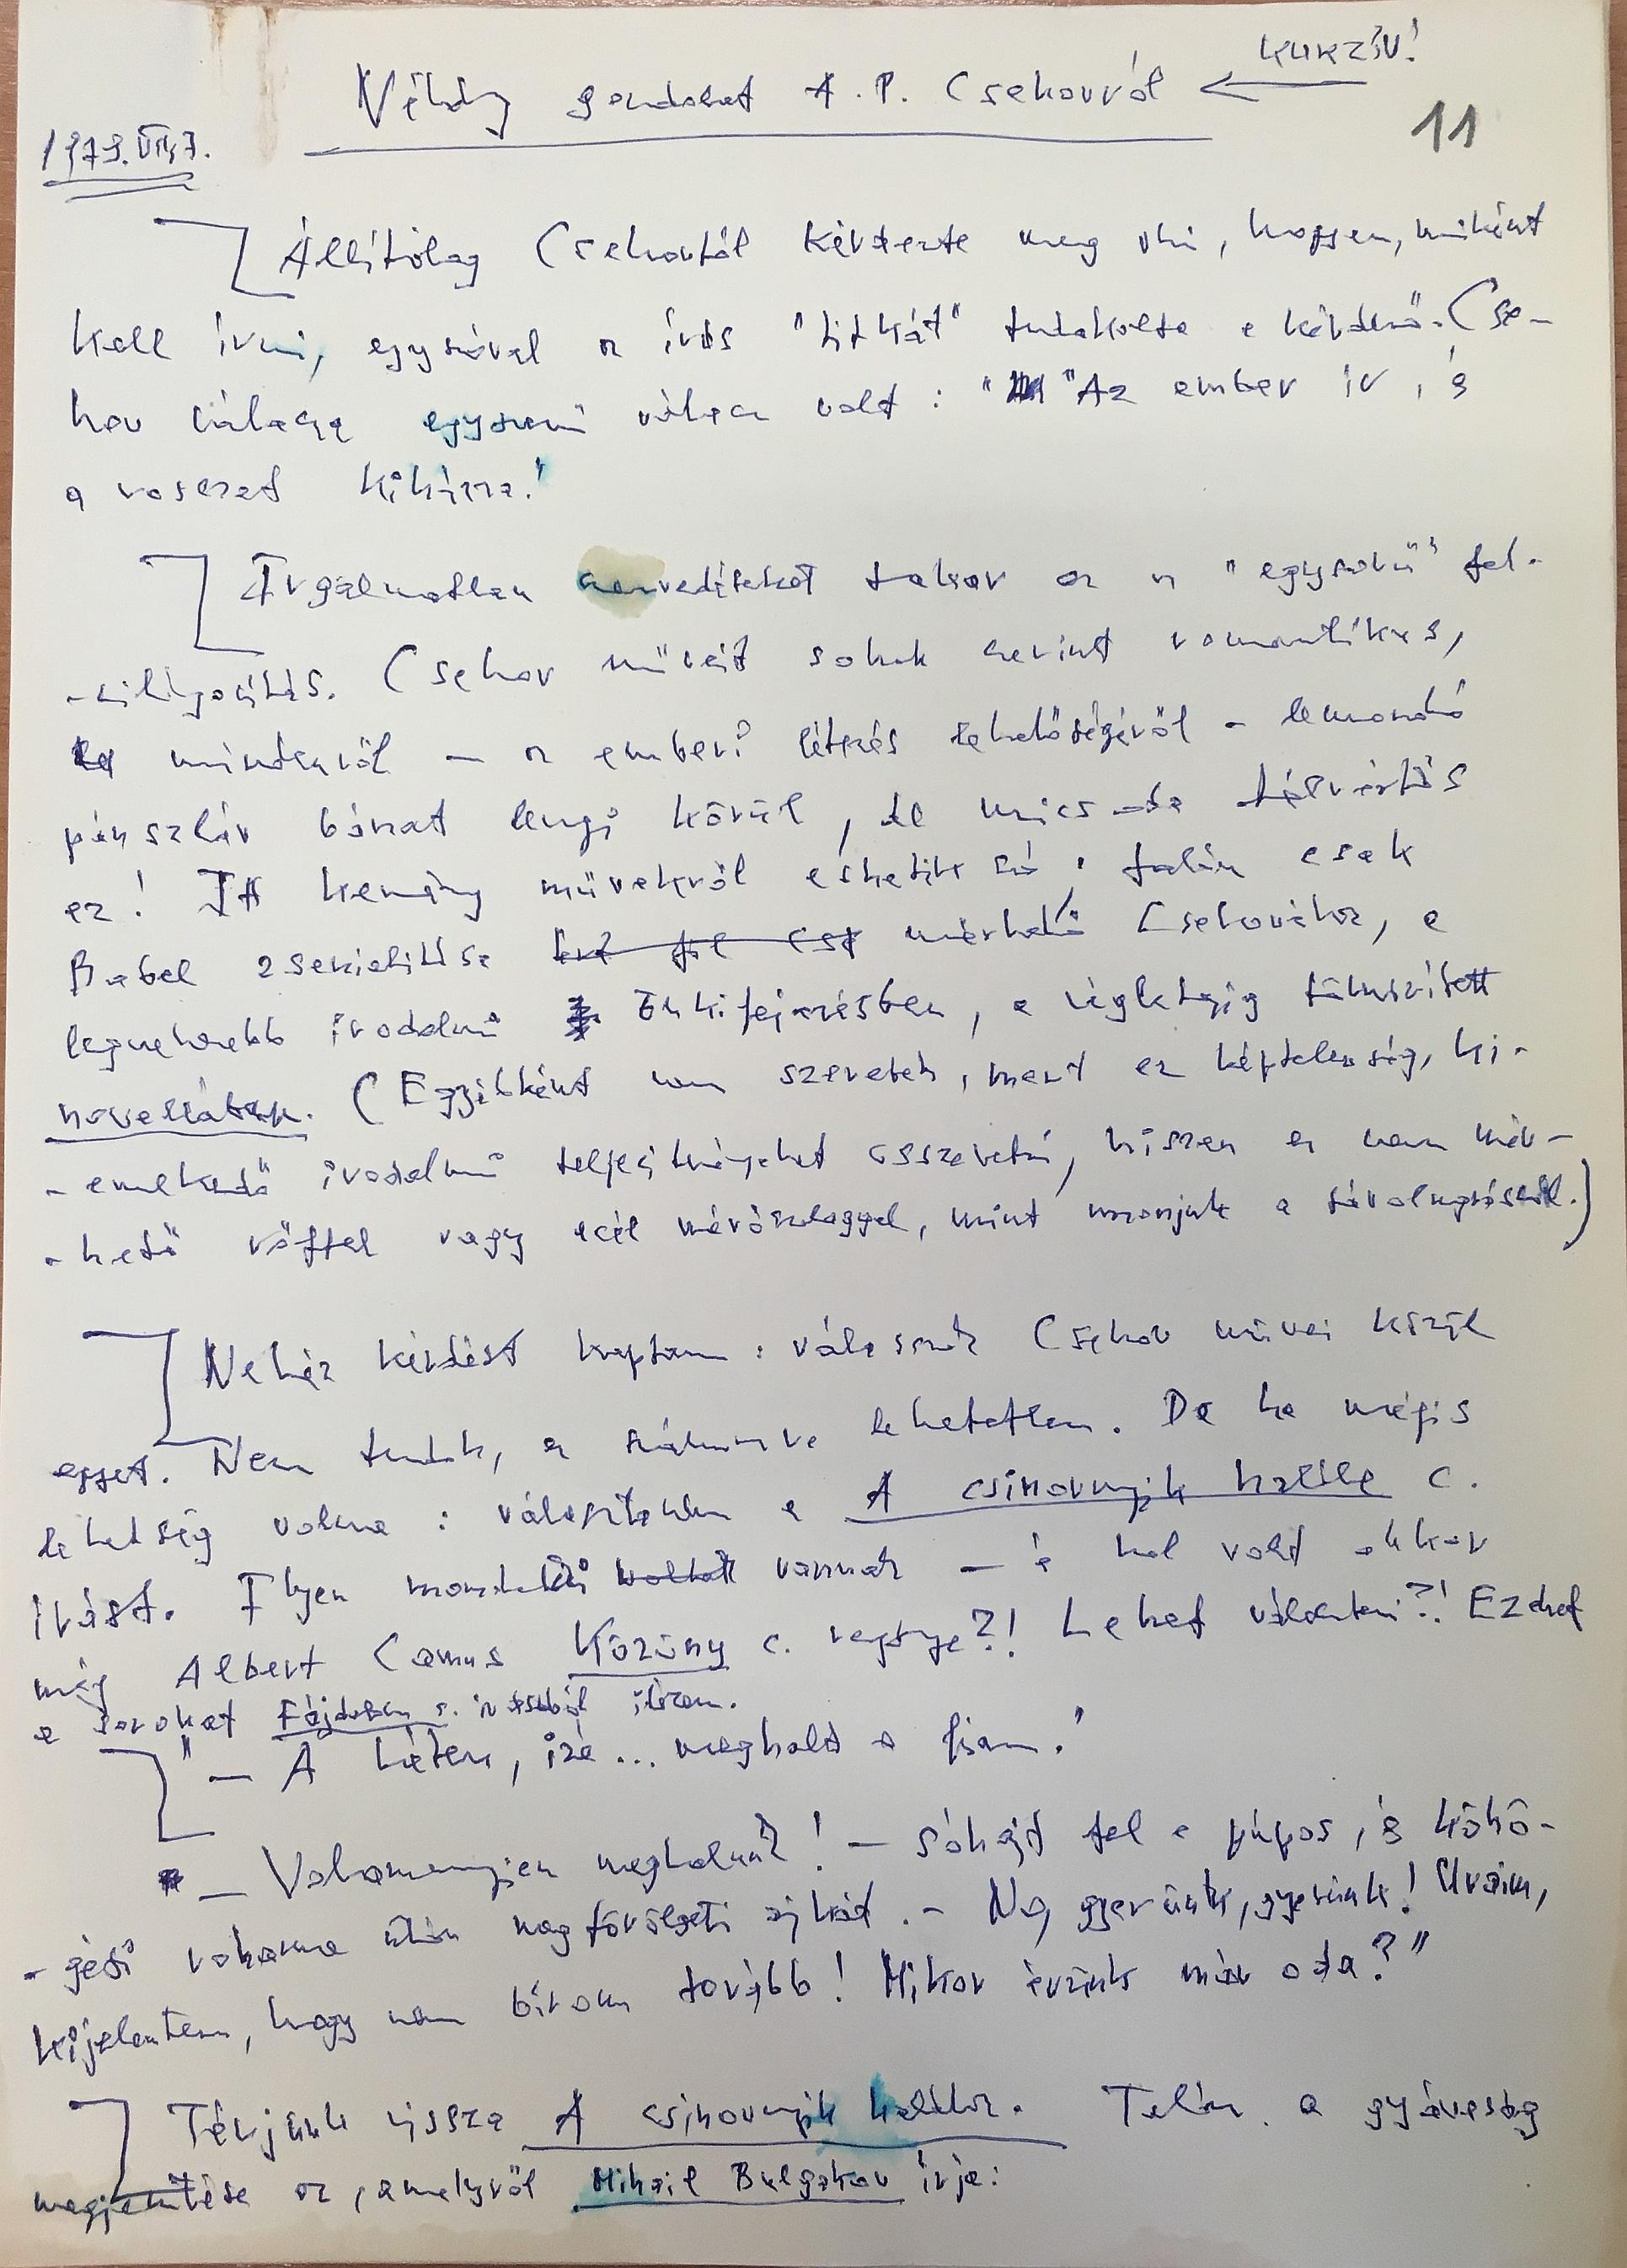 kurzív!
Néhány gondolat A. P. Csehovról
11
1979. VIII. 7.
Állítólag Csehovtól kérdezte meg vki, hogyan, miként
kell írni, egyszóval az írás "titkát" tudakolta a kérdező. Cse-
hov válasza egyszerű válasz volt: "Az ember ír, és
a rosszat kihúzza."
Irgalmatlan szenvedéseket takar ez az "egyszerű" fel-
-világosítás. Csehov műveit sokak szerint romantikus,
mindenről — az emberi létezés lehetőségéről – lemondó
pánszláv bánat lengi körül, de micsoda félreértés
ez! Itt kemény művekről eshetik szó: talán csak
Babel zsenialitása mérhető Csehovéhoz, a
legnehezebb irodalmi önkifejezésben, a végletekig tömörített
novellában. (Egyébként nem szeretek, mert ez képtelenség, ki-
-emelkedő irodalmi teljesítményeket összevetni, hiszen ez nem mér-
-hető röffel vagy acél mérőszalaggal, mint mondjuk a távolugrásnál.)
Nehéz kérdést kaptam: válasszak Csehov művei közül
egyet. Nem tudok, ez számomra lehetetlen. De ha mégis
lehetőség volna: választanám a A csinovnyik halála c.
írást. Ilyen mondatai vannak — és hol volt akkor
még Albert Camus Közöny c. regénye?! Lehet választani?! Ezeket
a sorokat Fájdalom c. írásából idézem.
"— A héten, izé... meghalt a fiam."
— Valamennyien meghalunk! — sóhajt fel a púpos, és köhö-
-gési rohama után megtörölgeti ajkát. – No, gyerünk, gyerünk! Uraim,
kijelentem, hogy nem bírom tovább! Mikor érünk már oda?"
Térjünk vissza A csinovnyik halálához. Talán a gyávaság
megjelenítése az, amelyről Mihail Bulgakov írja: